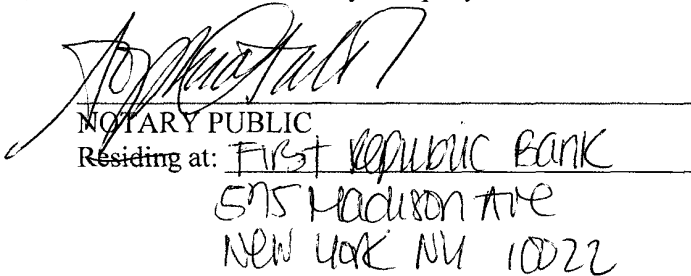 NOTARY PUBLIC
Residing at: First Republic Bank
575 Madison Ave
New York NY 10022